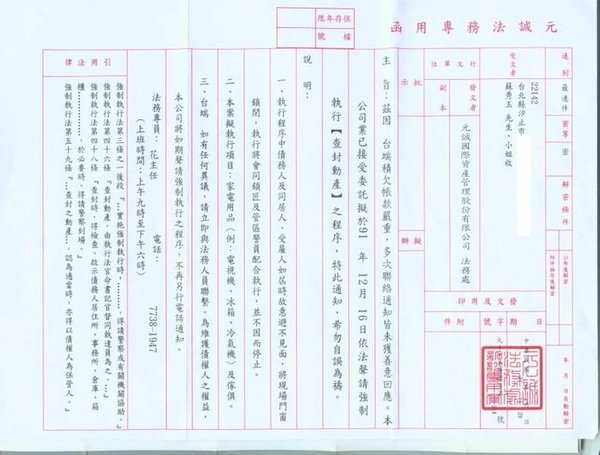 元誠法務專用函
保存年限
檔號
速別
最速件
密等
密
解密條件
公布後解密
附件抽存後解密
年 月 日自動解密
受文者
22142
台北縣汐止市
蘇秀玉 先生、小姐收
行文單位
副本
發文者
元誠國際資產管理股份有限公司 法務處
發文及用印
日期
字號
附件
批示
擬辦
主旨：茲因 台端積欠帳款嚴重，多次聯絡通知皆未獲善意回應。本
公司業已接受委託擬於91 年 12 月 16 日依法聲請強制
執行【查封動產】之程序，特此通知，希勿自誤為禱。
說明：
一、執行程序中債務人及同居人、受雇人如屆時故意避不見面，將現場門窗
鎖閉，執行將會同鎖匠及管區警員配合執行，並不因而停止。
二、本案擬執行項目：家電用品（例：電視機、冰箱、冷氣機）及傢俱。
三、台端 如有任何異議，請立即與法務人員聯繫。為維護債權人之權益，
本公司將如期聲請強制執行之程序，不再另行電話通知。
法務專員：花主任 電話：7738-1947
（上班時間：上午九時至下午六時）
引用法律
強制執行法第三條之一後段『…實施強制執行時，………，得請警察或有關機關協助。』
強制執行法第四十六條『查封動產，由執行法官命書記官督同執達員為之。…』
強制執行法第四十八條『查封時，得檢查、啟示債務人居住所、事務所、倉庫、箱
櫃………，於必要時，得請警察到場。』
強制執行法第五十九條『…查封之動產…，認為適當時，亦得以債權人為保管人。』